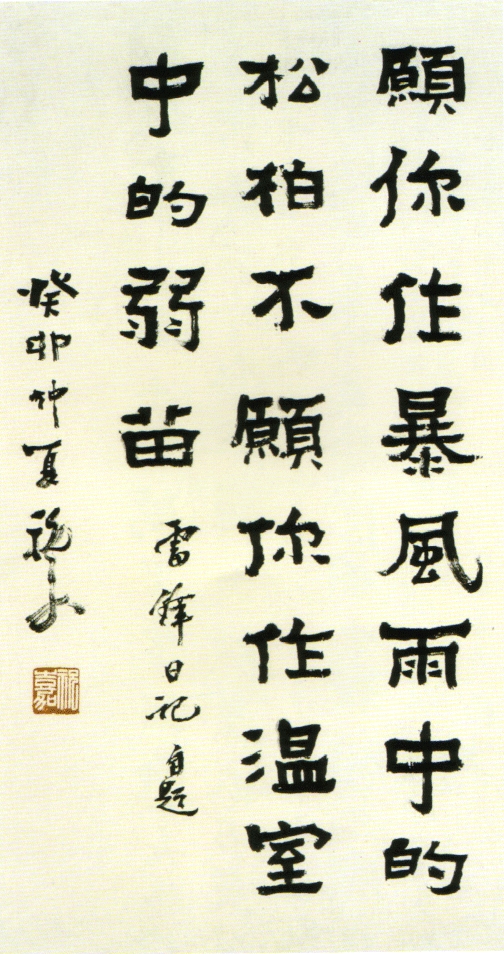 願你作暴風雨中的
松柏不願你作温室
中的弱苗 雷鋒日記自題
癸卯仲夏
祝嘉